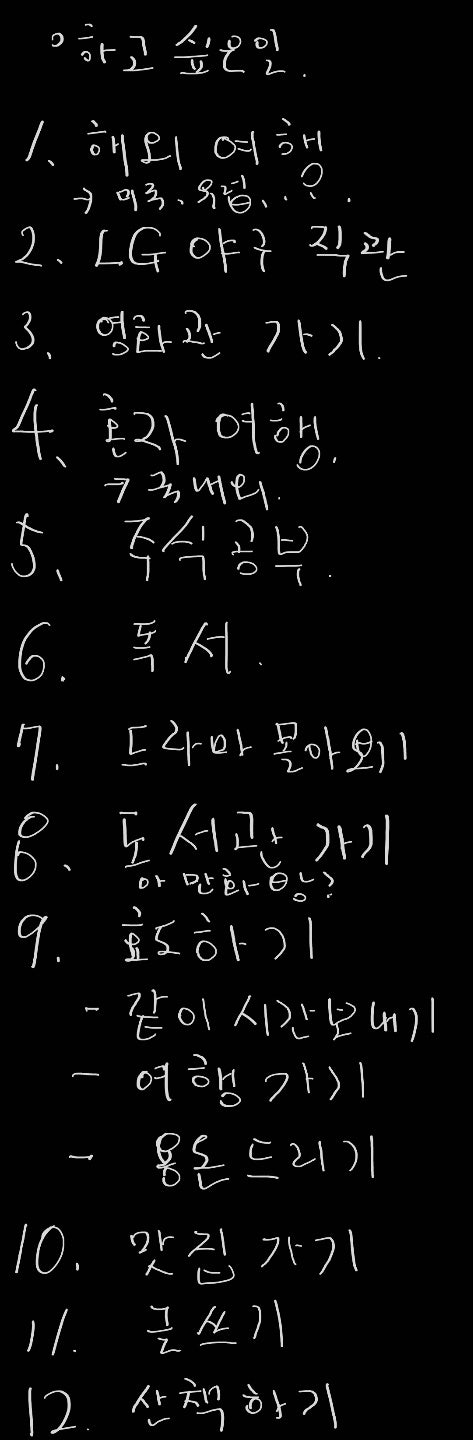 ° 하고 싶은일.
1. 해외 여행
→ 미국, 유럽, ..?.
2. LG 야구 직관
3. 영화관 가기.
4. 혼자 여행.
→ 국내외.
5. 주식공부.
6. 독서.
7. 드라마 몰아보기
8. 도서관 가기
아 만화방?
9. 효도하기
- 같이 시간보내기
- 여행 가기
- 용돈드리기
10. 맛집 가기
11. 글쓰기
12. 산책하기